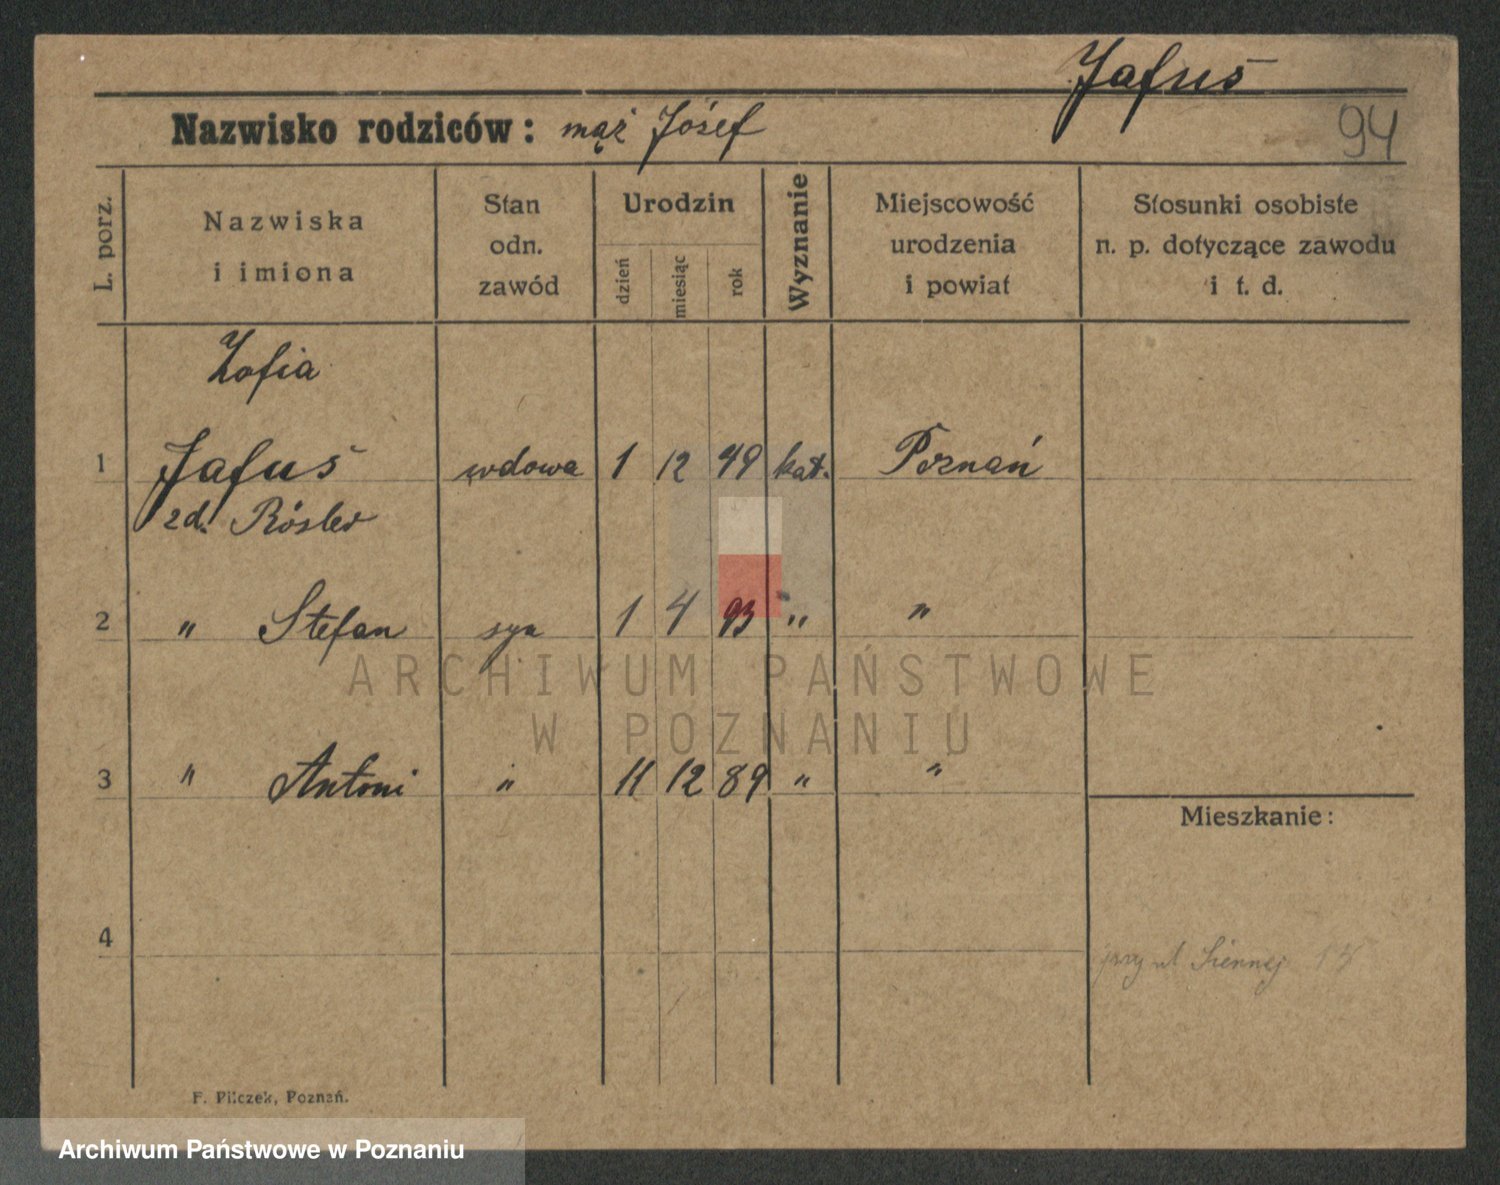 Jafuś
94
Nazwisko rodziców: mąż Józef
L. porz.
Nazwiska
i imiona
Stan
odn.
zawód
Urodzin
dzień
miesiąc
rok
Wyznanie
Miejscowość
urodzenia
i powiat
Stosunki osobiste
n. p. dotyczące zawodu
i t. d.
Zofia
1 Jafuś wdowa 1 12 49 kat. Poznań
zd. Rösler
2 " Stefan syn 1 4 93 " "
ARCHIWUM PAŃSTWOWE
W POZNANIU
3 " Antoni " 11 12 89 " "
Mieszkanie:
4
przy ul Siennej 15
F. Pilczek, Poznań.
Archiwum Państwowe w Poznaniu